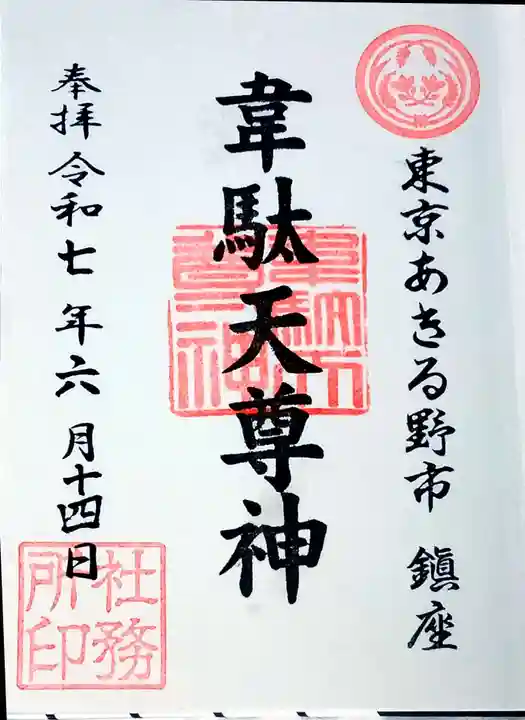 東京あきる野市 鎭座
韋駄天尊神
奉拝 令和七年六月十四日
韋駄天尊神
社務所印